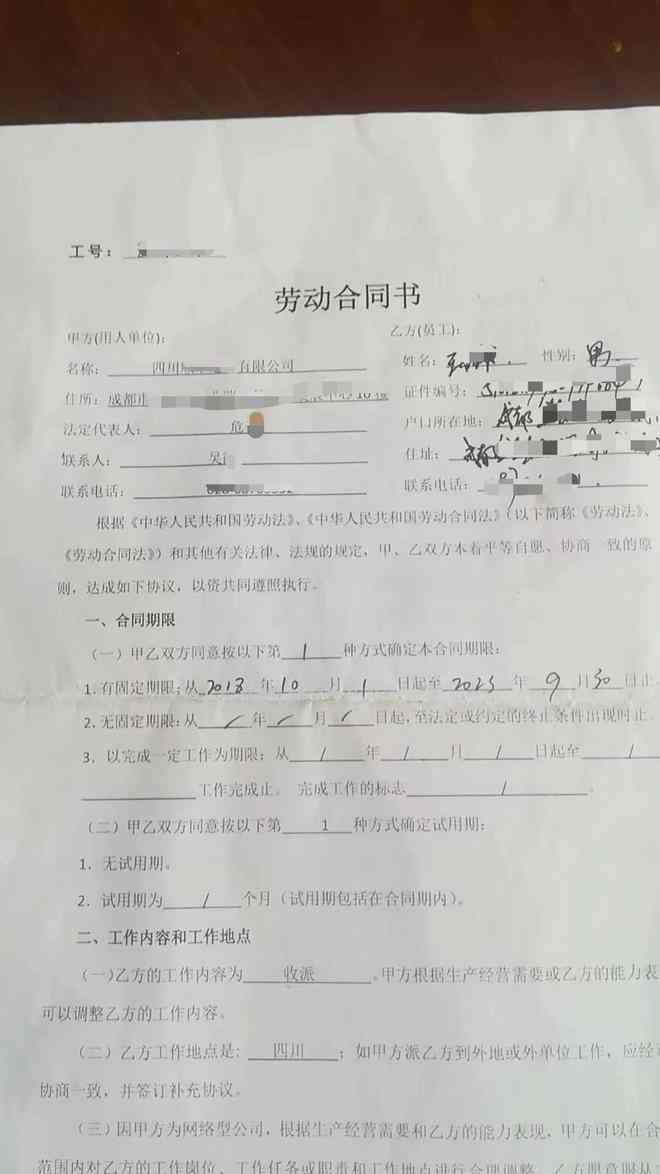 工号：
劳动合同书
甲方(用人单位)：
乙方(员工)：
名称： 四川 有限公司
姓名： 性别：男
住所：成都市
证件编号：
法定代表人： 危
户口所在地：成都
联系人： 吴
住址：成都
联系电话：
联系电话：
根据《中华人民共和国劳动法》、《中华人民共和国劳动合同法》（以下简称《劳动法》、
《劳动合同法》）和其他有关法律、法规的规定，甲、乙双方本着平等自愿、协商一致的原
则，达成如下协议，以资共同遵照执行。
一、合同期限
（一）甲乙双方同意按以下第 1 种方式确定本合同期限：
1.有固定期限：从 2018 年 10 月 1 日起至 2023 年 9 月 30 日止
2.无固定期限：从 / 年 / 月 / 日起，至法定或约定的终止条件出现时止。
3．以完成一定工作为期限：从 / 年 / 月 / 日起至 /
工作完成止。 完成工作的标志 / 。
（二）甲乙双方同意按以下第 1 种方式确定试用期：
1．无试用期。
2．试用期为 / 个月（试用期包括在合同期内）。
二、工作内容和工作地点
（一)乙方的工作内容为 收派 。甲方根据生产经营需要或乙方的能力表
可以调整乙方的工作内容。
（二）乙方工作地点是： 四川 ；如甲方派乙方到外地或外单位工作，应经
协商一致，并签订补充协议。
（三）因甲方为网络型公司，根据生产经营需要和乙方的能力表现，甲方可以在合
范围内对乙方的工作岗位、工作任务或职责和工作地点进行合理调整，乙方愿意服从